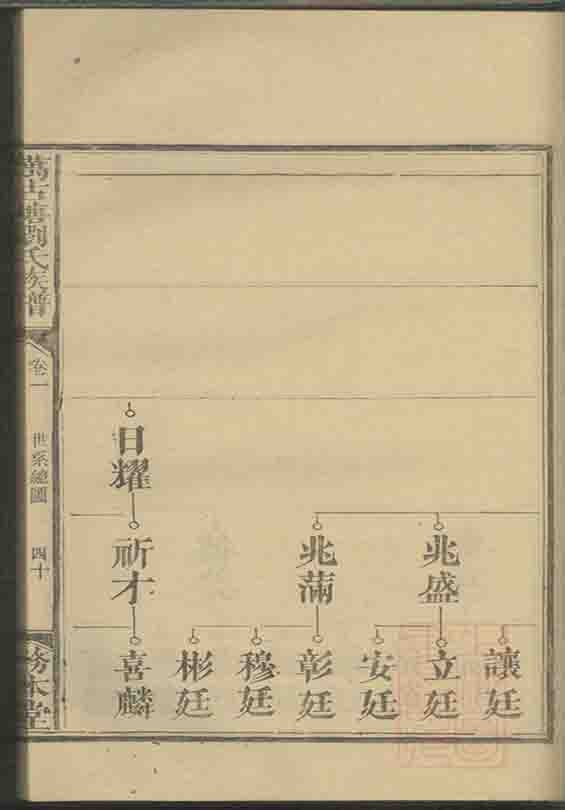 日耀
兆盛
兆滿
祈才
讓廷
立廷
安廷
彰廷
穆廷
彬廷
喜麟
劉氏族譜
卷一
世系總圖
四十
務本堂